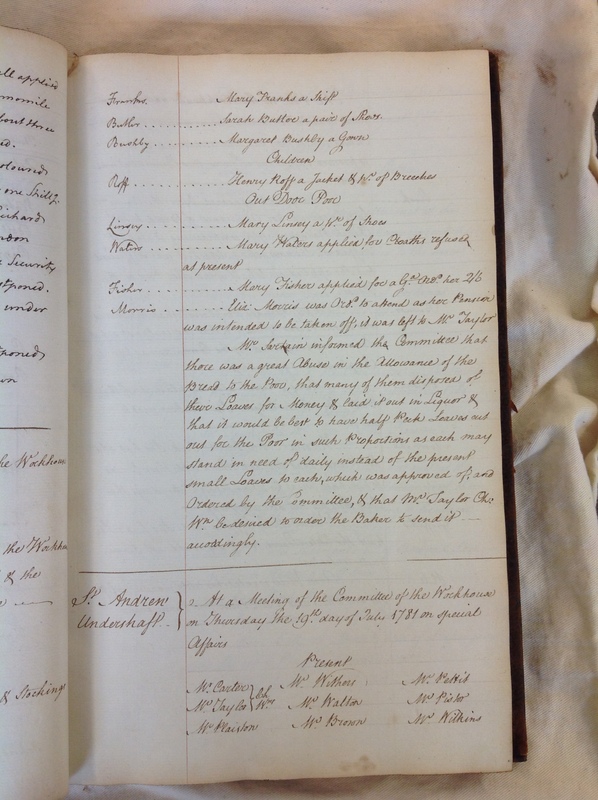 all applied
momile
bout three
ed.
one Shill
Richard
ndon
e Security
stponed.
under
poned
wn
he Workhou
the Workhou
& the
& Stocking
Franks. Mary Franks a Shift
Butler . . . . Sarah Butler a pair of Shoes.
Bushby . . . . Margaret Bushby a Gown
Children
Roff . . . . Henry Roff a Jacket & Wt. of Breeches
Out Door Poor
Linsey . . . . Mary Linsey a Wt. of Shoes
Waters . . . . Mary Waters applied for Cloaths refused
as present
Fisher . . . . Mary Fisher applied for a Gn. Ord. her 2/6
Morris . . . . Eliz. Morris was Ord. to attend as her Pension
was intended to be taken off, it was left to Mr. Taylor
Mr. informed the Committee that
there was a great Abuse in the Allowance of the
Bread to the Poor, that many of them disposed of
their Loaves for Money & laid it out in Liquor &
that it would be best to have half Peck Loaves cut
out for the Poor in such Proportions as each may
stand in need of daily instead of the present
small Loaves to each, which was approved of, and
Ordered by the Committee, & that Mr. Taylor Ch:
Wn be desired to order the Baker to send it
accordingly.
St. Andrew
Undershaft.
2. At a Meeting of the Committee of the Workhouse
on Thursday the 19th. day of July 1781 on special
Affairs
Present
Mr. Carter Mr. Withers Mr. Pettit
Mr. Taylor Ch. Wns Mr. Walton Mr. Pistor
Mr. Plaiston Mr. Brown Mr. Wilkins